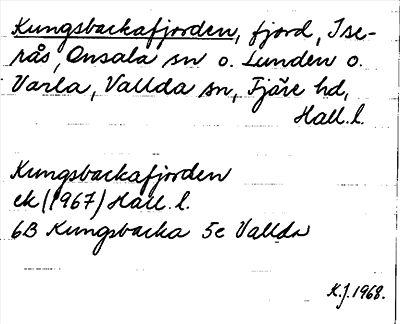 Kungsbackafjorden, fjord, Ise-
rås, Onsala sn o. Lunden o.
Varla, Vallda sn, Fjäre hd,
Hall.l.
Kungsbackafjorden
ek (1967) Hall.l.
6B Kungsbacka 5e Vallda
K.J. 1968.